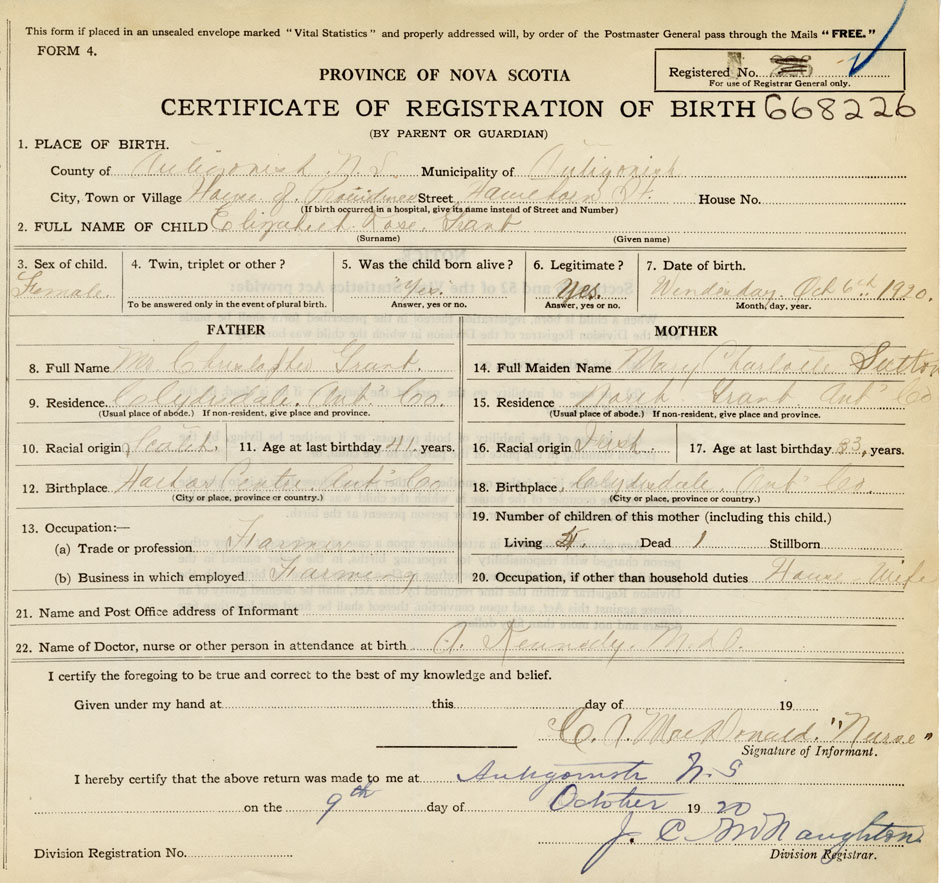 This form if placed in an unsealed envelope marked "Vital Statistics" and properly addressed will, by order of the Postmaster General pass through the Mails "FREE."
FORM 4.
Registered No.
For use of Registrar General only.
PROVINCE OF NOVA SCOTIA
CERTIFICATE OF REGISTRATION OF BIRTH 668226
(BY PARENT OR GUARDIAN)
1. PLACE OF BIRTH.
County of Antigonish N.S. Municipality of Antigonish
City, Town or Village House of Providence Street Hawthorn St. House No.
(If birth occurred in a hospital, give its name instead of Street and Number)
2. FULL NAME OF CHILD Elizabeth Rose Grant
(Surname) (Given name)
3. Sex of child. 4. Twin, triplet or other? 5. Was the child born alive? 6. Legitimate? 7. Date of birth.
Female. Yes. Yes. Wendesday, Oct 6th 1920.
To be answered only in the event of plural birth. Answer, yes or no. Answer, yes or no. Month, day, year.
FATHER MOTHER
8. Full Name Mr Christopher Grant. 14. Full Maiden Name Mary Charlotte Sutton
9. Residence Clydesdale. Ant' Co. 15. Residence North Grant Ant' Co
(Usual place of abode.) If non-resident, give place and province. (Usual place of abode.) If non-resident, give place and province.
10. Racial origin Scotch. 11. Age at last birthday 41. years. 16. Racial origin Irish. 17. Age at last birthday 33, years.
12. Birthplace Ant' Co 18. Birthplace, Clydesdale, Ant' Co.
(City or place, province or country.) (City or place, province or country.)
13. Occupation:— 19. Number of children of this mother (including this child.)
(a) Trade or profession Farmer Living Dead 1 Stillborn
(b) Business in which employed Farming 20. Occupation, if other than household duties House Wife
21. Name and Post Office address of Informant
22. Name of Doctor, nurse or other person in attendance at birth Kennedy. M.D.
I certify the foregoing to be true and correct to the best of my knowledge and belief.
Given under my hand at this day of 19
C. J. MacDonald. "Nurse"
Signature of Informant.
I hereby certify that the above return was made to me at Antigonish N.S
on the 9th day of October 1920
J. C. McNaughton
Division Registration No. Division Registrar.